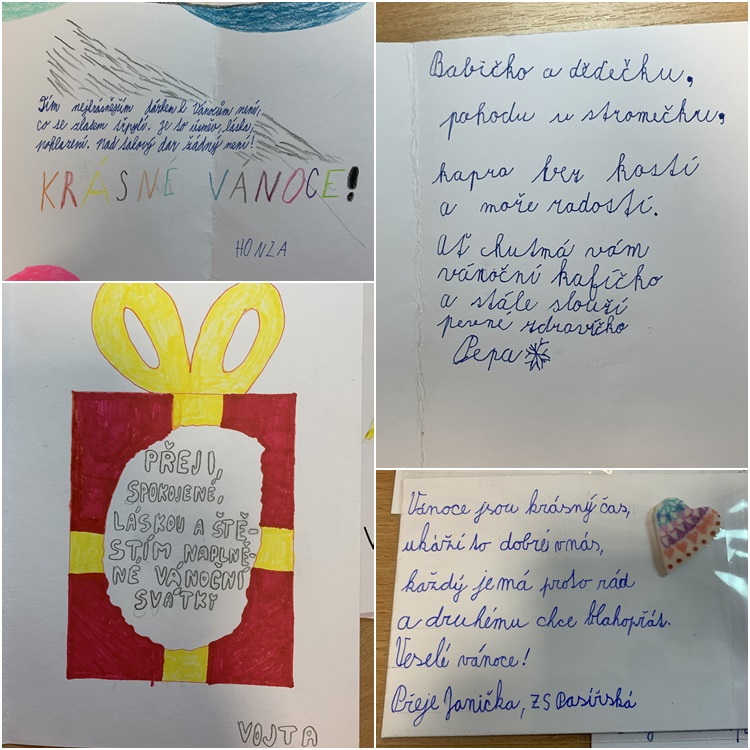 Tím nejkrásnějším dárkem k Vánocům není,
co se zlatem třpytí. Je to úsměv, láska,
pohlazení. nad takový dar žádný není!
KRÁSNÉ VÁNOCE!
HONZA
Babičko a dědečku,
pohodu u stromečku,
kapra bez kostí
a moře radostí.
Ať chutná vám
vánoční kafíčko
a stále slouží
pevné zdravíčko
Pepa
PŘEJI,
SPOKOJENÉ,
LÁSKOU A ŠTĚ-
STÍM NAPLNĚ-
NÉ VÁNOČNÍ
SVÁTKY
VOJTA
Vánoce jsou krásný čas,
ukáží to dobré v nás,
každý je má proto rád
a druhému chce blahopřát.
Veselé vánoce!
Přeje Janička, ZŠ Pasířská